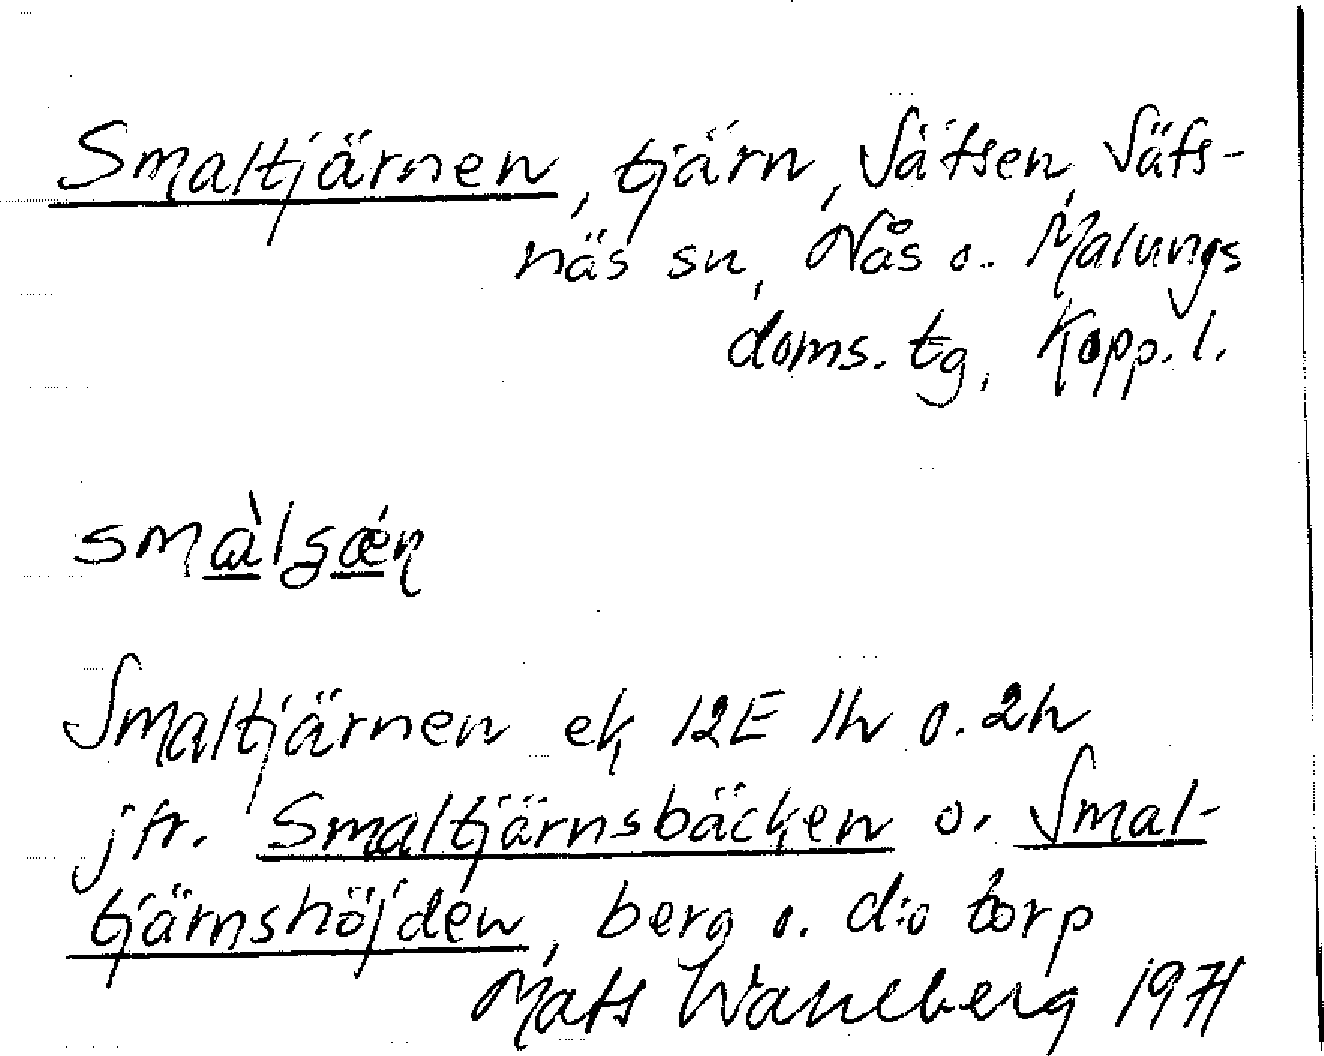 Smaltjärnen, tjärn, Säfsen, Säfs-
näs sn, Nås o. Malungs
doms. tg, Kopp. l.
smàlʒǽn
Smaltjärnen ek 12E 1h o. 2h
jfr. Smaltjärnsbäcken o. Smal-
tjärnshöjden, berg o. d:o torp
Mats Wahlberg 1971